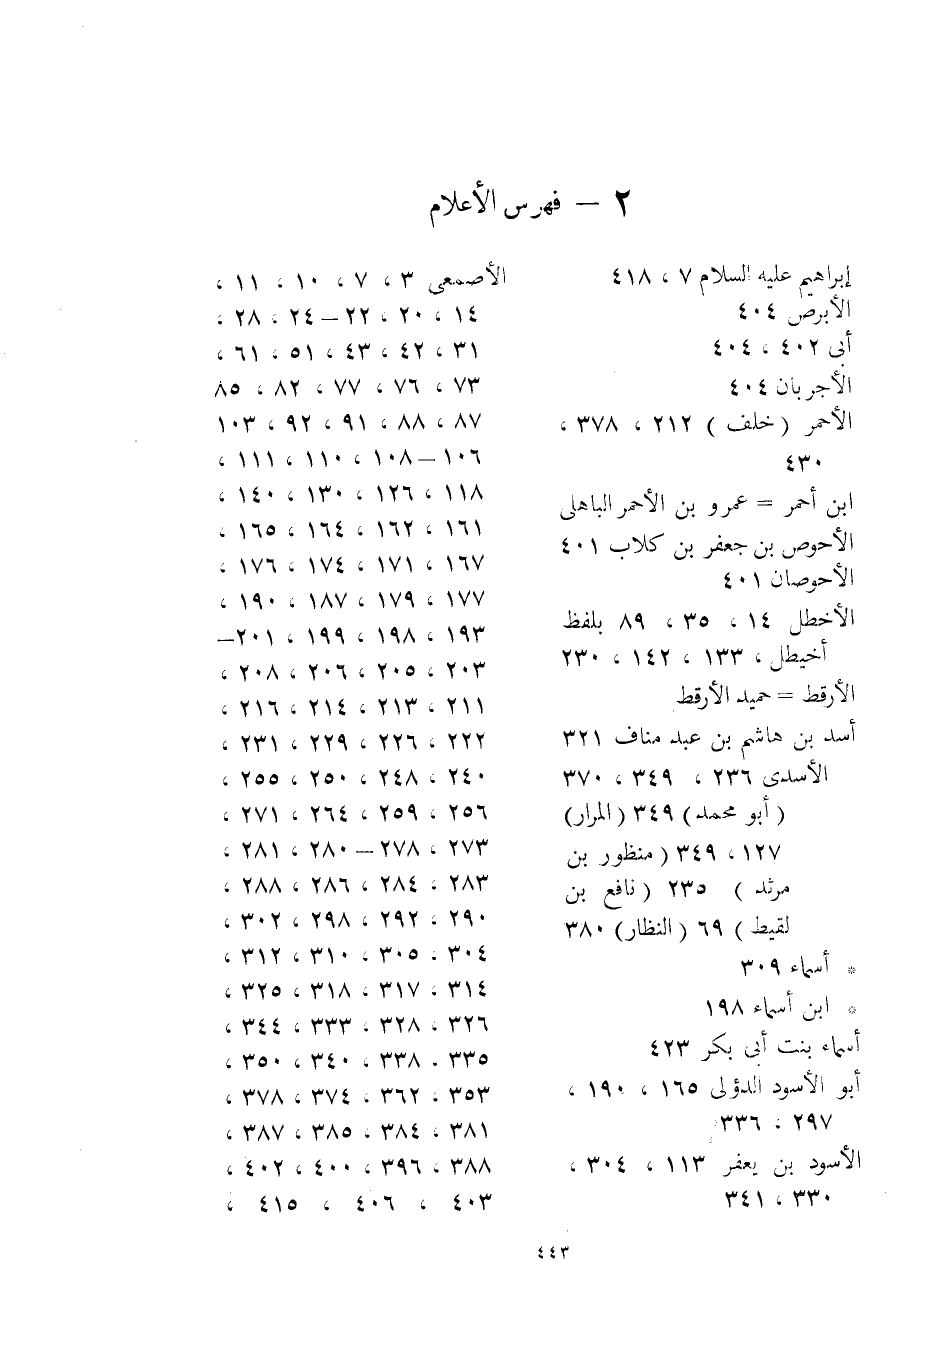 ٢ — فهرس الأعلام
إبراهيم عليه السلام ٧ ، ٤١٨
الأبرص ٤٠٤
أبى ٤٠٢ ، ٤٠٤
الأجربان ٤٠٤
الأحمر ( خلف ) ٢١٢ ، ٣٧٨ ،
٤٣٠
ابن أحمر = عمرو بن الأحمر الباهلى
الأحوص بن جعفر بن كلاب ٤٠١
الأحوصان ٤٠١
الأخطل ١٤ ، ٣٥ ، ٨٩ بلفظ
أخيطل ، ١٣٣ ، ١٤٢ ، ٢٣٠
الأرقط = حميد الأرقط
أسد بن هاشم بن عبد مناف ٣٢١
الأسدى ٢٣٦ ، ٣٤٩ ، ٣٧٠
( أبو محمد ) ٣٤٩ ( المرار)
١٢٧ ، ٣٤٩ ( منظور بن
مرثد ) ٢٣٥ ( نافع بن
لقيط ) ٦٩ ( النظار) ٣٨٠
* أسماء ٣٠٩
* ابن أسماء ١٩٨
أسماء بنت أبى بكر ٤٢٣
أبو الأسود الدؤلى ١٦٥ ، ١٩٠ ،
٢٩٧ ، ٣٣٦
الأسود بن يعفر ١١٣ ، ٣٠٤ ،
٣٣٠ ، ٣٤١
الأصمعى ٣ ، ٧ ، ١٠ ، ١١ ،
١٤ ، ٢٠ ، ٢٢ — ٢٤ ، ٢٨ ،
٣١ ، ٤٢ ، ٤٣ ، ٥١ ، ٦١ ،
٧٣ ، ٧٦ ، ٧٧ ، ٨٢ ، ٨٥
٨٧ ، ٨٨ ، ٩١ ، ٩٢ ، ١٠٣
١٠٦ — ١٠٨ ، ١١٠ ، ١١١ ،
١١٨ ، ١٢٦ ، ١٣٠ ، ١٤٠ ،
١٦١ ، ١٦٢ ، ١٦٤ ، ١٦٥ ،
١٦٧ ، ١٧١ ، ١٧٤ ، ١٧٦ ،
١٧٧ ، ١٧٩ ، ١٨٧ ، ١٩٠ ،
١٩٣ ، ١٩٨ ، ١٩٩ ، ٢٠١ —
٢٠٣ ، ٢٠٥ ، ٢٠٦ ، ٢٠٨ ،
٢١١ ، ٢١٣ ، ٢١٤ ، ٢١٦ ،
٢٢٢ ، ٢٢٦ ، ٢٢٩ ، ٢٣١ ،
٢٤٠ ، ٢٤٨ ، ٢٥٠ ، ٢٥٥ ،
٢٥٦ ، ٢٥٩ ، ٢٦٤ ، ٢٧١ ،
٢٧٣ ، ٢٧٨ — ٢٨٠ ، ٢٨١ ،
٢٨٣ ، ٢٨٤ ، ٢٨٦ ، ٢٨٨ ،
٢٩٠ ، ٢٩٢ ، ٢٩٨ ، ٣٠٢ ،
٣٠٤ ، ٣٠٥ ، ٣١٠ ، ٣١٢ ،
٣١٤ ، ٣١٧ ، ٣١٨ ، ٣٢٥ ،
٣٢٦ ، ٣٢٨ ، ٣٣٣ ، ٣٤٤ ،
٣٣٥ ، ٣٣٨ ، ٣٤٠ ، ٣٥٠ ،
٣٥٣ ، ٣٦٢ ، ٣٧٤ ، ٣٧٨ ،
٣٨١ ، ٣٨٤ ، ٣٨٥ ، ٣٨٧ ،
٣٨٨ ، ٣٩٦ ، ٤٠٠ ، ٤٠٢ ،
٤٠٣ ، ٤٠٦ ، ٤١٥ ،
٤٤٣